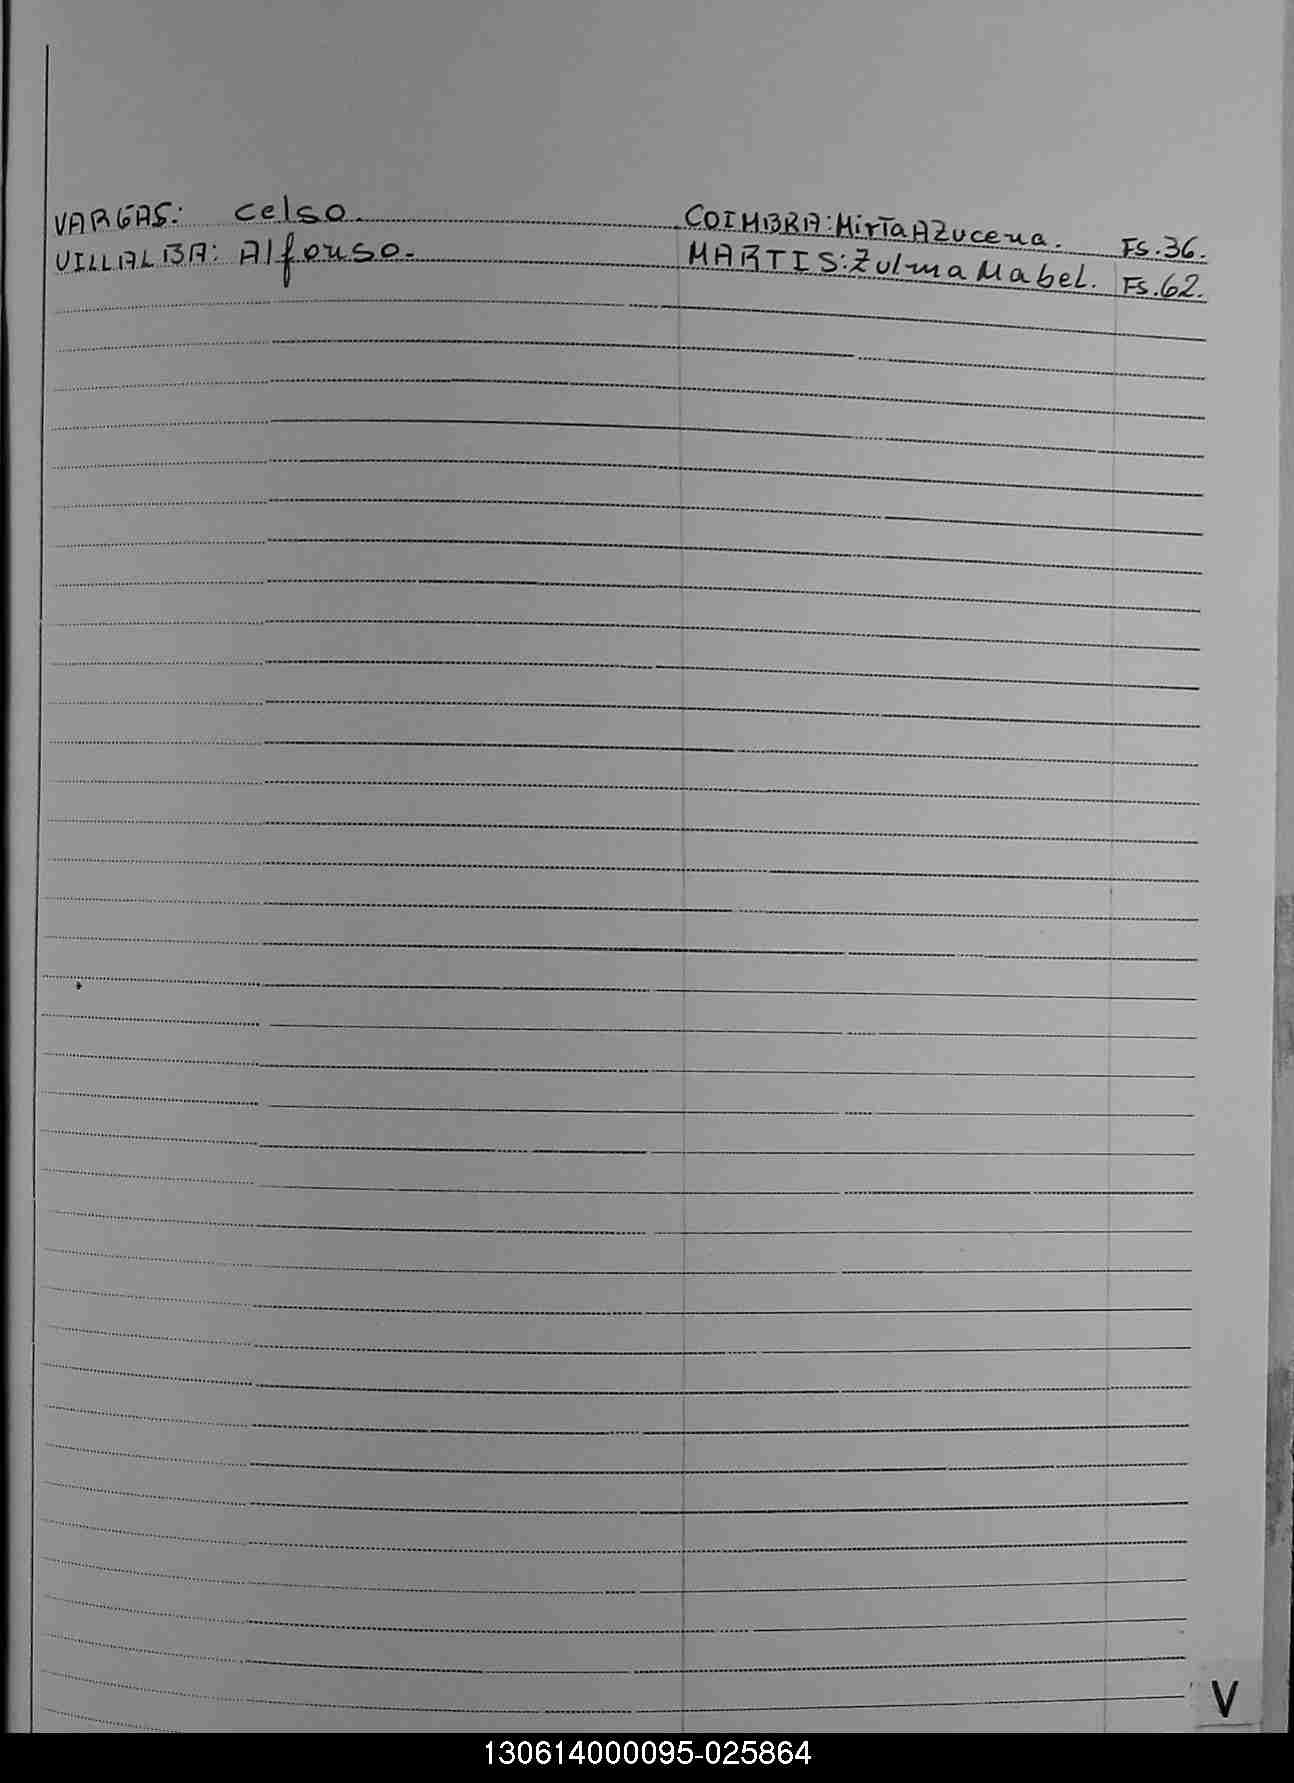 VARGAS: Celso. COIMBRA: Mirta AZucena. Fs. 36.
VILLALBA: Alfonso. MARTIS: Zulma Mabel. Fs. 62.
V
130614000095-025864